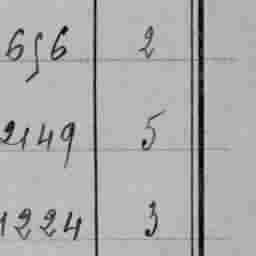 656 2
2149 5
1224 3